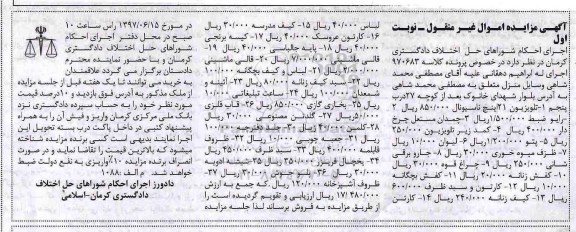 آگهی مزایده اموال غیر منقول - نوبت
اول
اجرای احکام شوراهای حل اختلاف دادگستری
کرمان در نظر دارد در خصوص پرونده کلاسه ۹۷۰۶۸۳
اجرای له ابراهیم دهقانی علیه آقای مصطفی محمد
شاهی وسایل منزل متعلق به مصطفی محمد شاهی
به آدرس بلوار شهدای خانوک بعد از کوچه ۲۷درب
پنجم ۱-تلویزیون ۲۱پینچ ناسیونال ۸۵۰/۰۰۰ ریال ۲-
ابرایو ضبط ۱/۵۰۰/۰۰۰ریال ۳-چمدان مستعل چرخ
دار ۴۰۰/۰۰۰ ریال ۴- کمد زیر تلویزیون ۲۵۰/۰۰۰
ریال ۵- پتو ۱/۲۰۰/۰۰۰ریال ۶- لیوان ۱۰/۰۰۰ ریال
۷- ظرف میوه خوری ۳۰/۰۰۰ ریال ۸- جارو برقی
شانی ۲۵۰/۰۰۰ ریال ۹- چراغ قوه ۳۰/۰۰۰ ریال
۱۰- کفش زنانه ۲۰/۰۰۰ ریال ۱۱- کفش بچگانه
۱۰/۰۰۰ ریال ۱۲- کارتون و سبد ظرف ۶۰۰/۰۰۰
ریال ۱۳- کیف زنانه ۲۴۰/۰۰۰ ریال ۱۴- کارتن
لباس ۴۰/۰۰۰ ریال ۱۵- کیف مدرسه ۳۰/۰۰۰ ریال
۱۶- کارتون عروسک ۴۰/۰۰۰ ریال ۱۷- کیسه برنجی
۴۰/۰۰۰ ریال ۱۸- پایه جالباسی ۴۰/۰۰۰ ریال ۱۹-
قالی ماشینی ۷/۰۰۰/۰۰۰ ریال ۲۰- قالی ماشینی
ریال ۲۱- لباس و کیف بچگانه ۱۰۰/۰۰۰
ریال ۲۲- سبد کیف زنانه ۸۰/۰۰۰ ریال ۲۳- آئینه و
شمعدان ۱۰۰/۰۰۰ ریال ۲۴- ساعت تبلیغاتی ۱۰/۰۰۰
ریال ۲۵- بخاری گازی ۸۵۰/۰۰۰ ریال ۲۶- قاب فلزی
۵۰/۰۰۰ ریال ۲۷- گلدئن مصنوعی ۳۰/۰۰۰ ریال
۲۸-کلمن ۴۰/۰۰۰ ریال ۳۰- جلد دفترچه ۱۰/۰۰۰
ریال ۳۱- جعبه چوبی ۱۰/۰۰۰ ریال ۳۲- ظروف
قابلمه ۴۰۰/۰۰۰ ریال ۳۳- سبد ظرف ۴۵۰/۰۰۰ ریال
۳۴- یخچال فریزر ۲۵۰/۰۰۰ ریال ۳۵-شیشه ادویه
۳۰/۰۰۰ ریال ۳۶- پلوز جوش ۳۰/۰۰۰ ریال ۳۷-
ظروف آشپزخانه ۱۲۰/۰۰۰ ریال .که جمع به ارزش
۱۷/۴۸۰/۰۰۰ ریال ارزیابی و تقویم گردیده است را
از طریق مزایده به فروش برساند لذا جلسه مزایده
در مورخ ۱۳۹۷/۰۶/۱۵ راس ساعت ۱۰
صبح در محل دفتر اجرای احکام
شوراهای حل اختلاف دادگستری
کرمان و با حضور نماینده محترم
دادستان برگزار می گردد علاقمندان
به خرید می توانند تا یک هفته قبل از جلسه مزایده
از ملک مذکور به آدرس فوق بازدید و ۱۰درصد قیمت
مورد نظر خود را به حساب سپرده دادگستری نزد
بانک ملی مرکزی کرمان واریز و فیش آن را به همراه
پیشنهاد کتبی در داخل پاکت درب بسته تحویل این
اجرا نمایند بدیهی است کسی برنده مزایده شناخته
میشود که بالاترین قیمت را تقاضا نماید و در صورت
انصراف برنده مزایده ۱۰٪واریزی به نفع دولت ضبط
خواهد شد. م الف: ۱۰۸۸
دادورز اجرای احکام شوراهای حل اختلاف
دادگستری کرمان-اسلامی